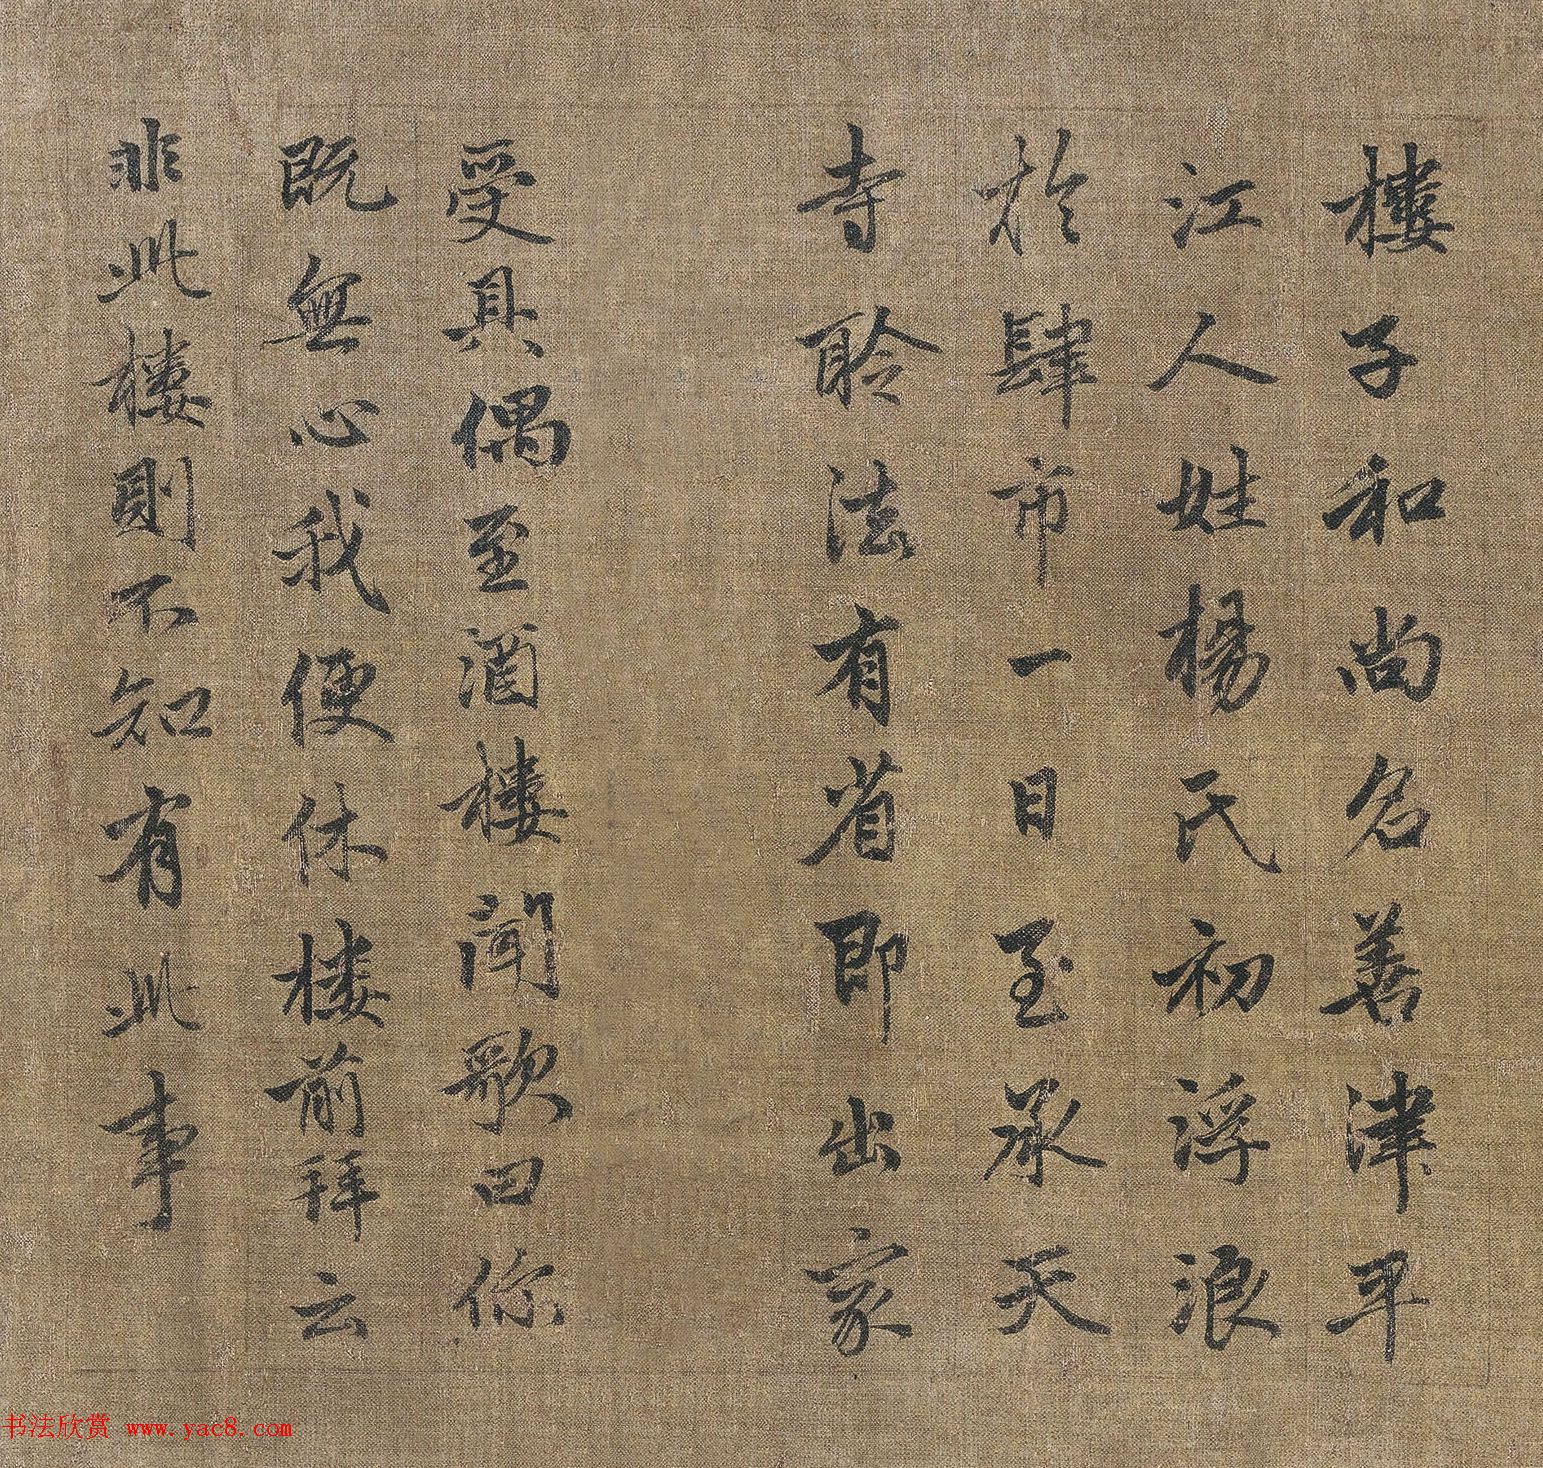 樓子和尚名善津平
江人姓楊氏初浮浪
於肆市一日至承天
寺聆法有省即出家
受具偶至酒樓聞歌曰你
既無心我便休樓前拜云
非此樓則不知有此事
书法欣赏 www.yac8.com